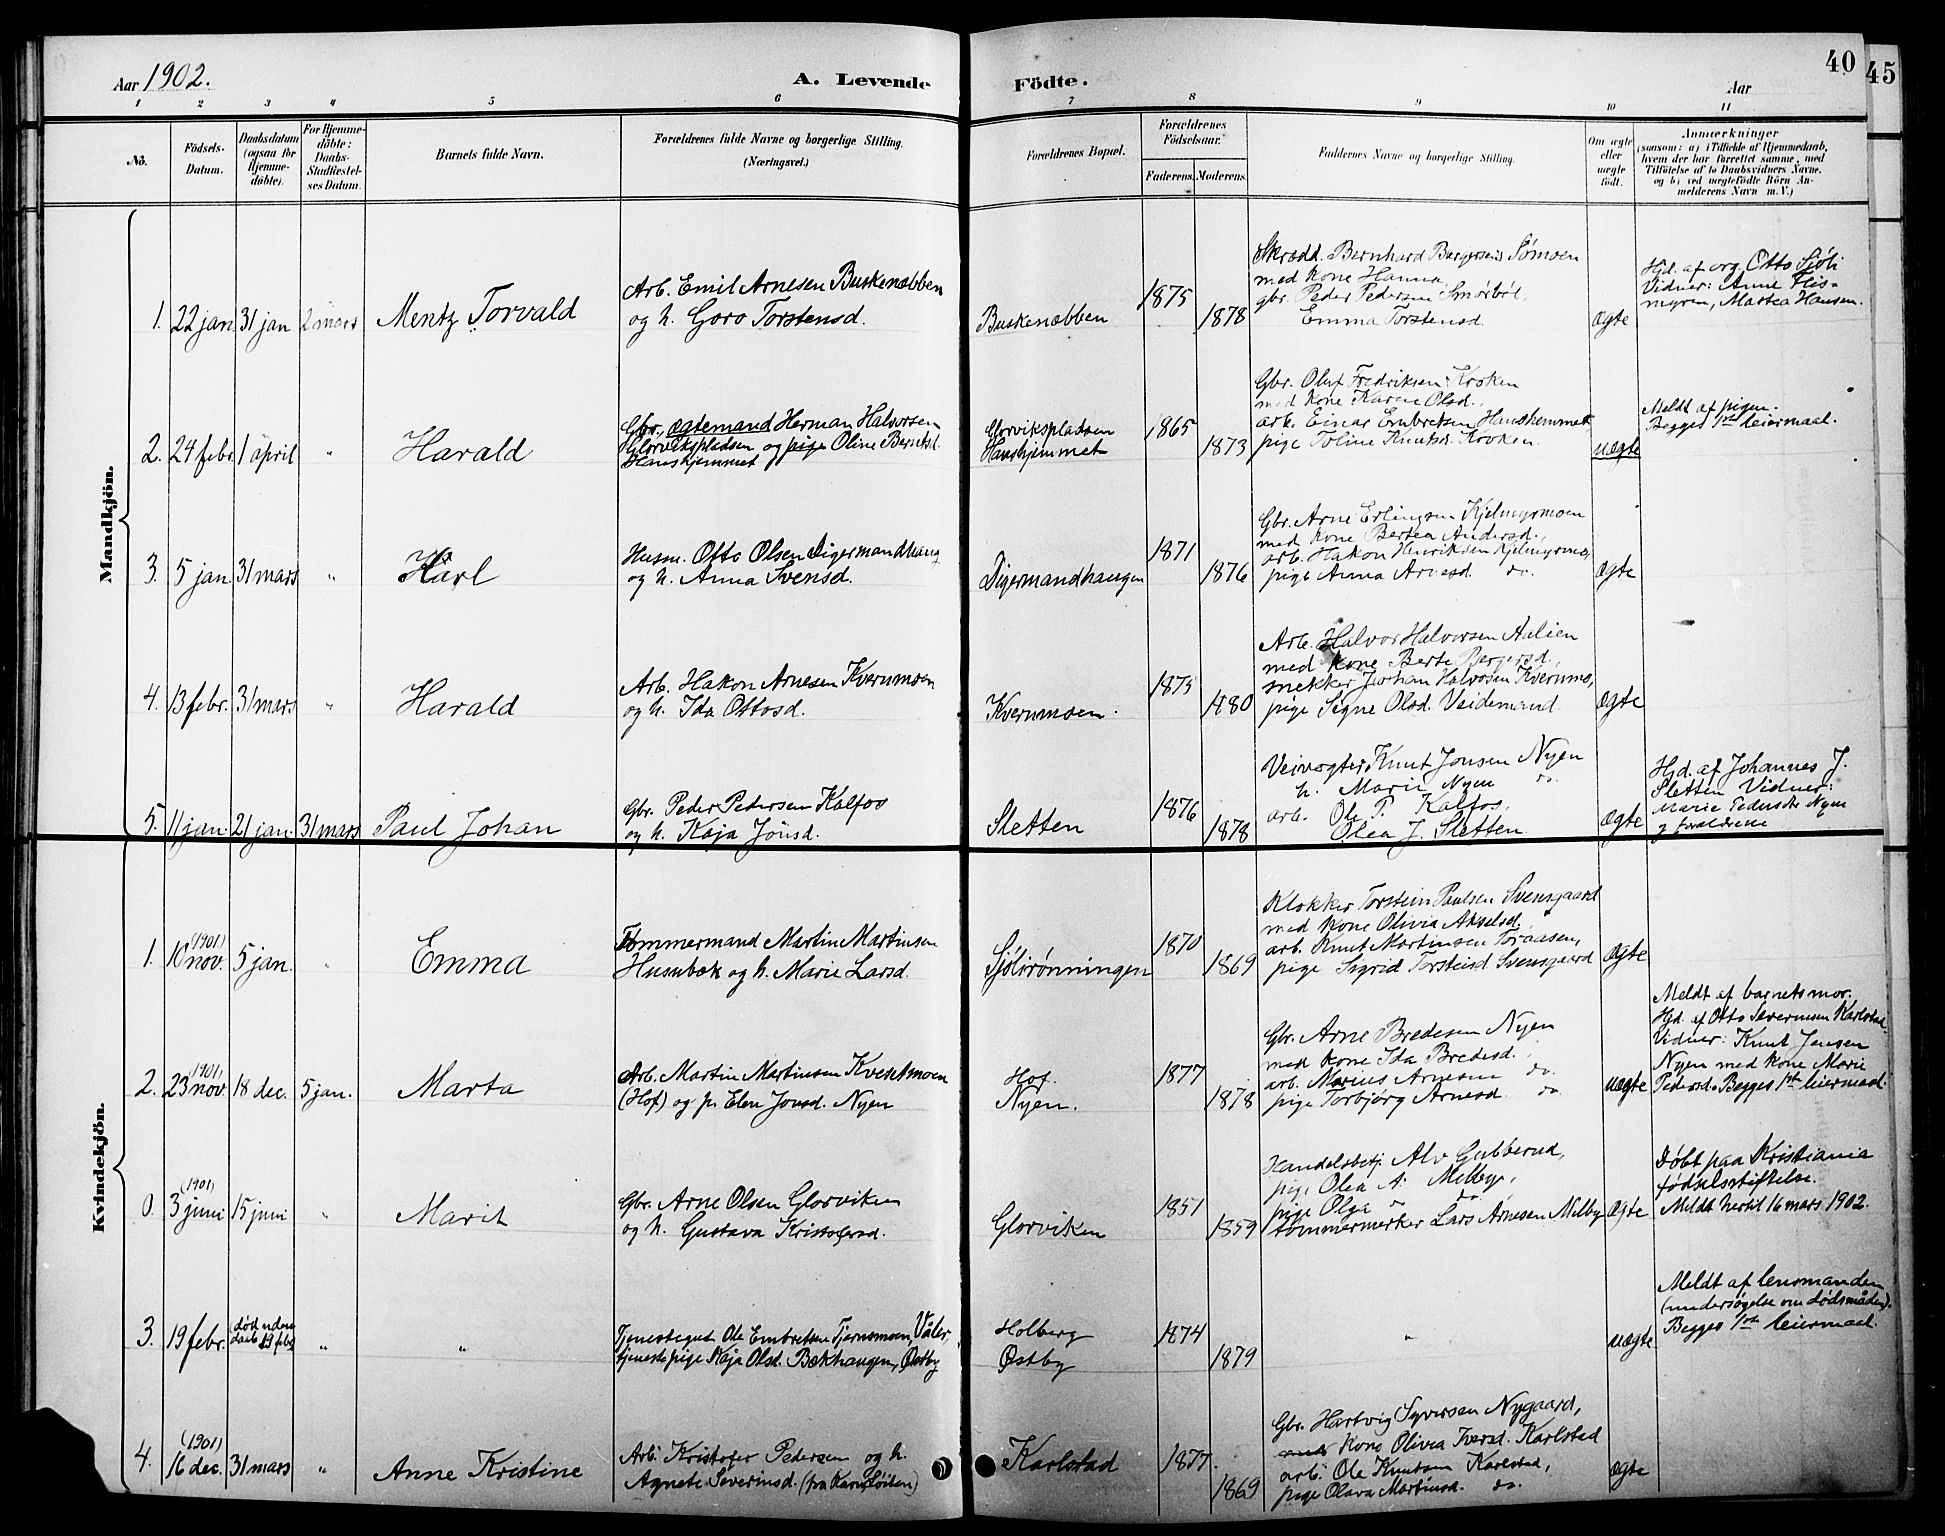 Aar 1902.
A. Levende Födte.
Aar
40
45
1 2 3 4 5 6 7 8 9 10 11
No.
Födsels-Datum.
Daabsdatum (ogsaa for Hjemme-döbte).
For Hjemme-döbte: Daabs-Stadfæstel-ses Datum.
Barnets fulde Navn.
Forældrenes fulde Navne og borgerlige Stilling.
(Næringsvei.)
Forældrenes Bopæl.
Forældrenes Födselsaar.
Faderens. Moderens.
Faddernes Navne og borgerlige Stilling.
Om ægte eller uægte födt.
Anmærkninger
(saasom: a) i Tilfælde af Hjemmedaab,
hvem der har forrettet samme, med
Tilföielse af to Daabsvidners Navne.
og b) ved uægtefödte Börn An-
melderens Navn m. V.)
Mandkjön.
1. 22 jan. 31 jan 2 mars Mentz Torvald
Arb. Emil Arnesen Buskenæbben
og h. Goro Torstensd.
Buskenæbben
1875
1878
Skrædd. Bernhard Bergersen Sømoen
med kone Hanna,
gbr. Peder Pedersen Smørbøl,
Emma Torstensd.
Ægte
Hjd. af org. Otto Sjöli
Vidner: Anne Flis-
myren, Martea Hansen.
2. 24 febr. 1 april " Harald
Gbr., ægtemand Herman Halvorsen
Glorvikspladsen og pige Oline Berntsd.
Hanshjemmet
Glorvikspladsen
Hanshjemmet
1865
1873
Gbr. Oluf Fredriksen Kroken
med kone Karen Olsd.,
arb. Einar Embretsen Hanshemmet
pige Toline Knutsd. Kroken.
uægte
Meldt af pigen.
Begges 1ste leiermaal.
3. 5 jan. 31 mars " Karl
Husm. Otto Olsen Digermandhaug
og h. Anna Svensd.
Digermandhaugen
1871
1876
Gbr. Arne Erlingsen Kjelmyrmoen
med kone Bertea Andersd.,
arb. Hakon Henriksen Kjelmyrmo,
pige Anna Arnesd. do.
Ægte
4. 13 febr. 31 mars " Harald
Arb. Hakon Arnesen Kvernmoen
og h. Ida Ottosd.
Kvernmoen.
1875
1880
Arb. Halvor Halvorsen Aalien
med kone Berte Bergersd.,
snekker Johan Halvorsen Kvernmo,
pige Signe Olsd. Veidemand.
Ægte
5. 11 jan. 21 jan. 31 mars Paul Johan
Gbr. Peder Pedersen Kalfos
og h. Kaja Jönsd.
Sletten
1876
1878
Veivogter Knut Jonsen Nyen
h. Marie Nyen do.
arb. Ole P. Kalfos,
Olea J. Sletten.
Ægte
Hjd. af Johannes J.
Sletten Vidner:
Marie Pedersdtr Nyen
og forældrene
Kvindekjön.
1. (1901) 10 nov. 5 jan. " Emma
Tømmermand Martin Martinsen
Husubæk og h. Marie Larsd.
Sjölirønningen
1870
1869
Klokker Torstein Paulsen Svensgaard
med kone Olivia Akselsd.,
arb. Knut Martinsen Toraasen,
pige Sigrid Torsteinsd Svensgaard
Ægte
2. (1901) 23 nov. 18 dec. 5 jan. Marta
Arb. Martin Martinsen Kvestmoen
(Hof) og p. Elen Jonsd. Nyen
Hof.
Nyen.
1877
1878
Gbr. Arne Bredesen Nyen
med kone Ida Bredesd.,
arb. Marius Arnesen do.
pige Torbjørg Arnesd. do
uægte
Meldt af barnets mor.
Hjd. af Otto Severinsen Karlstad.
Vidner: Knut Jensen
Nyen med kone Marie
Pedersd. Begges 1ste leiermaal.
0. (1901) 3 juni 15 juni " Marit
Gbr. Arne Olsen Glorviken
og h. Gustava Kristofersd.
Glorviken
1851
1859
Handelsbetj. Alv Gubberud,
pige Olea A. Melby,
pige Olga " do.
tømmermerker Lars Arnesen Melby
Ægte
Døbt paa Kristiania
fødselsstiftelse.
Meldt hertil 16 mars 1902.
3. 19 febr. død uden daab 19 febr " "
Tjenestegut Ole Embretsen Tjernsmoen, Våler,
tjenestepige Kaja Olsd. Bækhaugen, Østby
Holberg
Østby
1874
1879
"
uægte
Meldt af lensmanden
(undersøgelse om dødsmåden).
Begges 1ste leiermaal.
4. (1901) 16 dec. 31 mars " Anne Kristine
Arb. Kristofer Pedersen og h.
Agnete Severinsd.
Karlstad
1877.
1869
Gbr. Hartvig Syversen Nygaard,
kone Olivia Iversd. Karlstad
arb. Ole Knutsen Karlstad,
pige Olava Martinsd. do.
Ægte